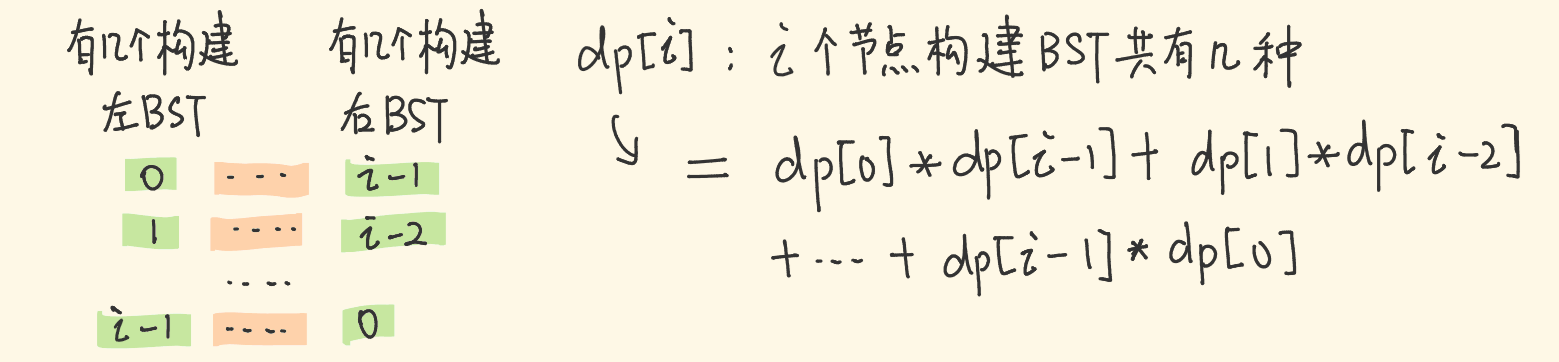 有几个构建 有几个构建
左BST 右BST
0 --- i-1
1 ---- i-2
....
i-1 ---- 0
dp[i] : i个节点构建BST共有几种
= dp[0]*dp[i-1]+ dp[1]*dp[i-2]
+ ... + dp[i-1]* dp[0]